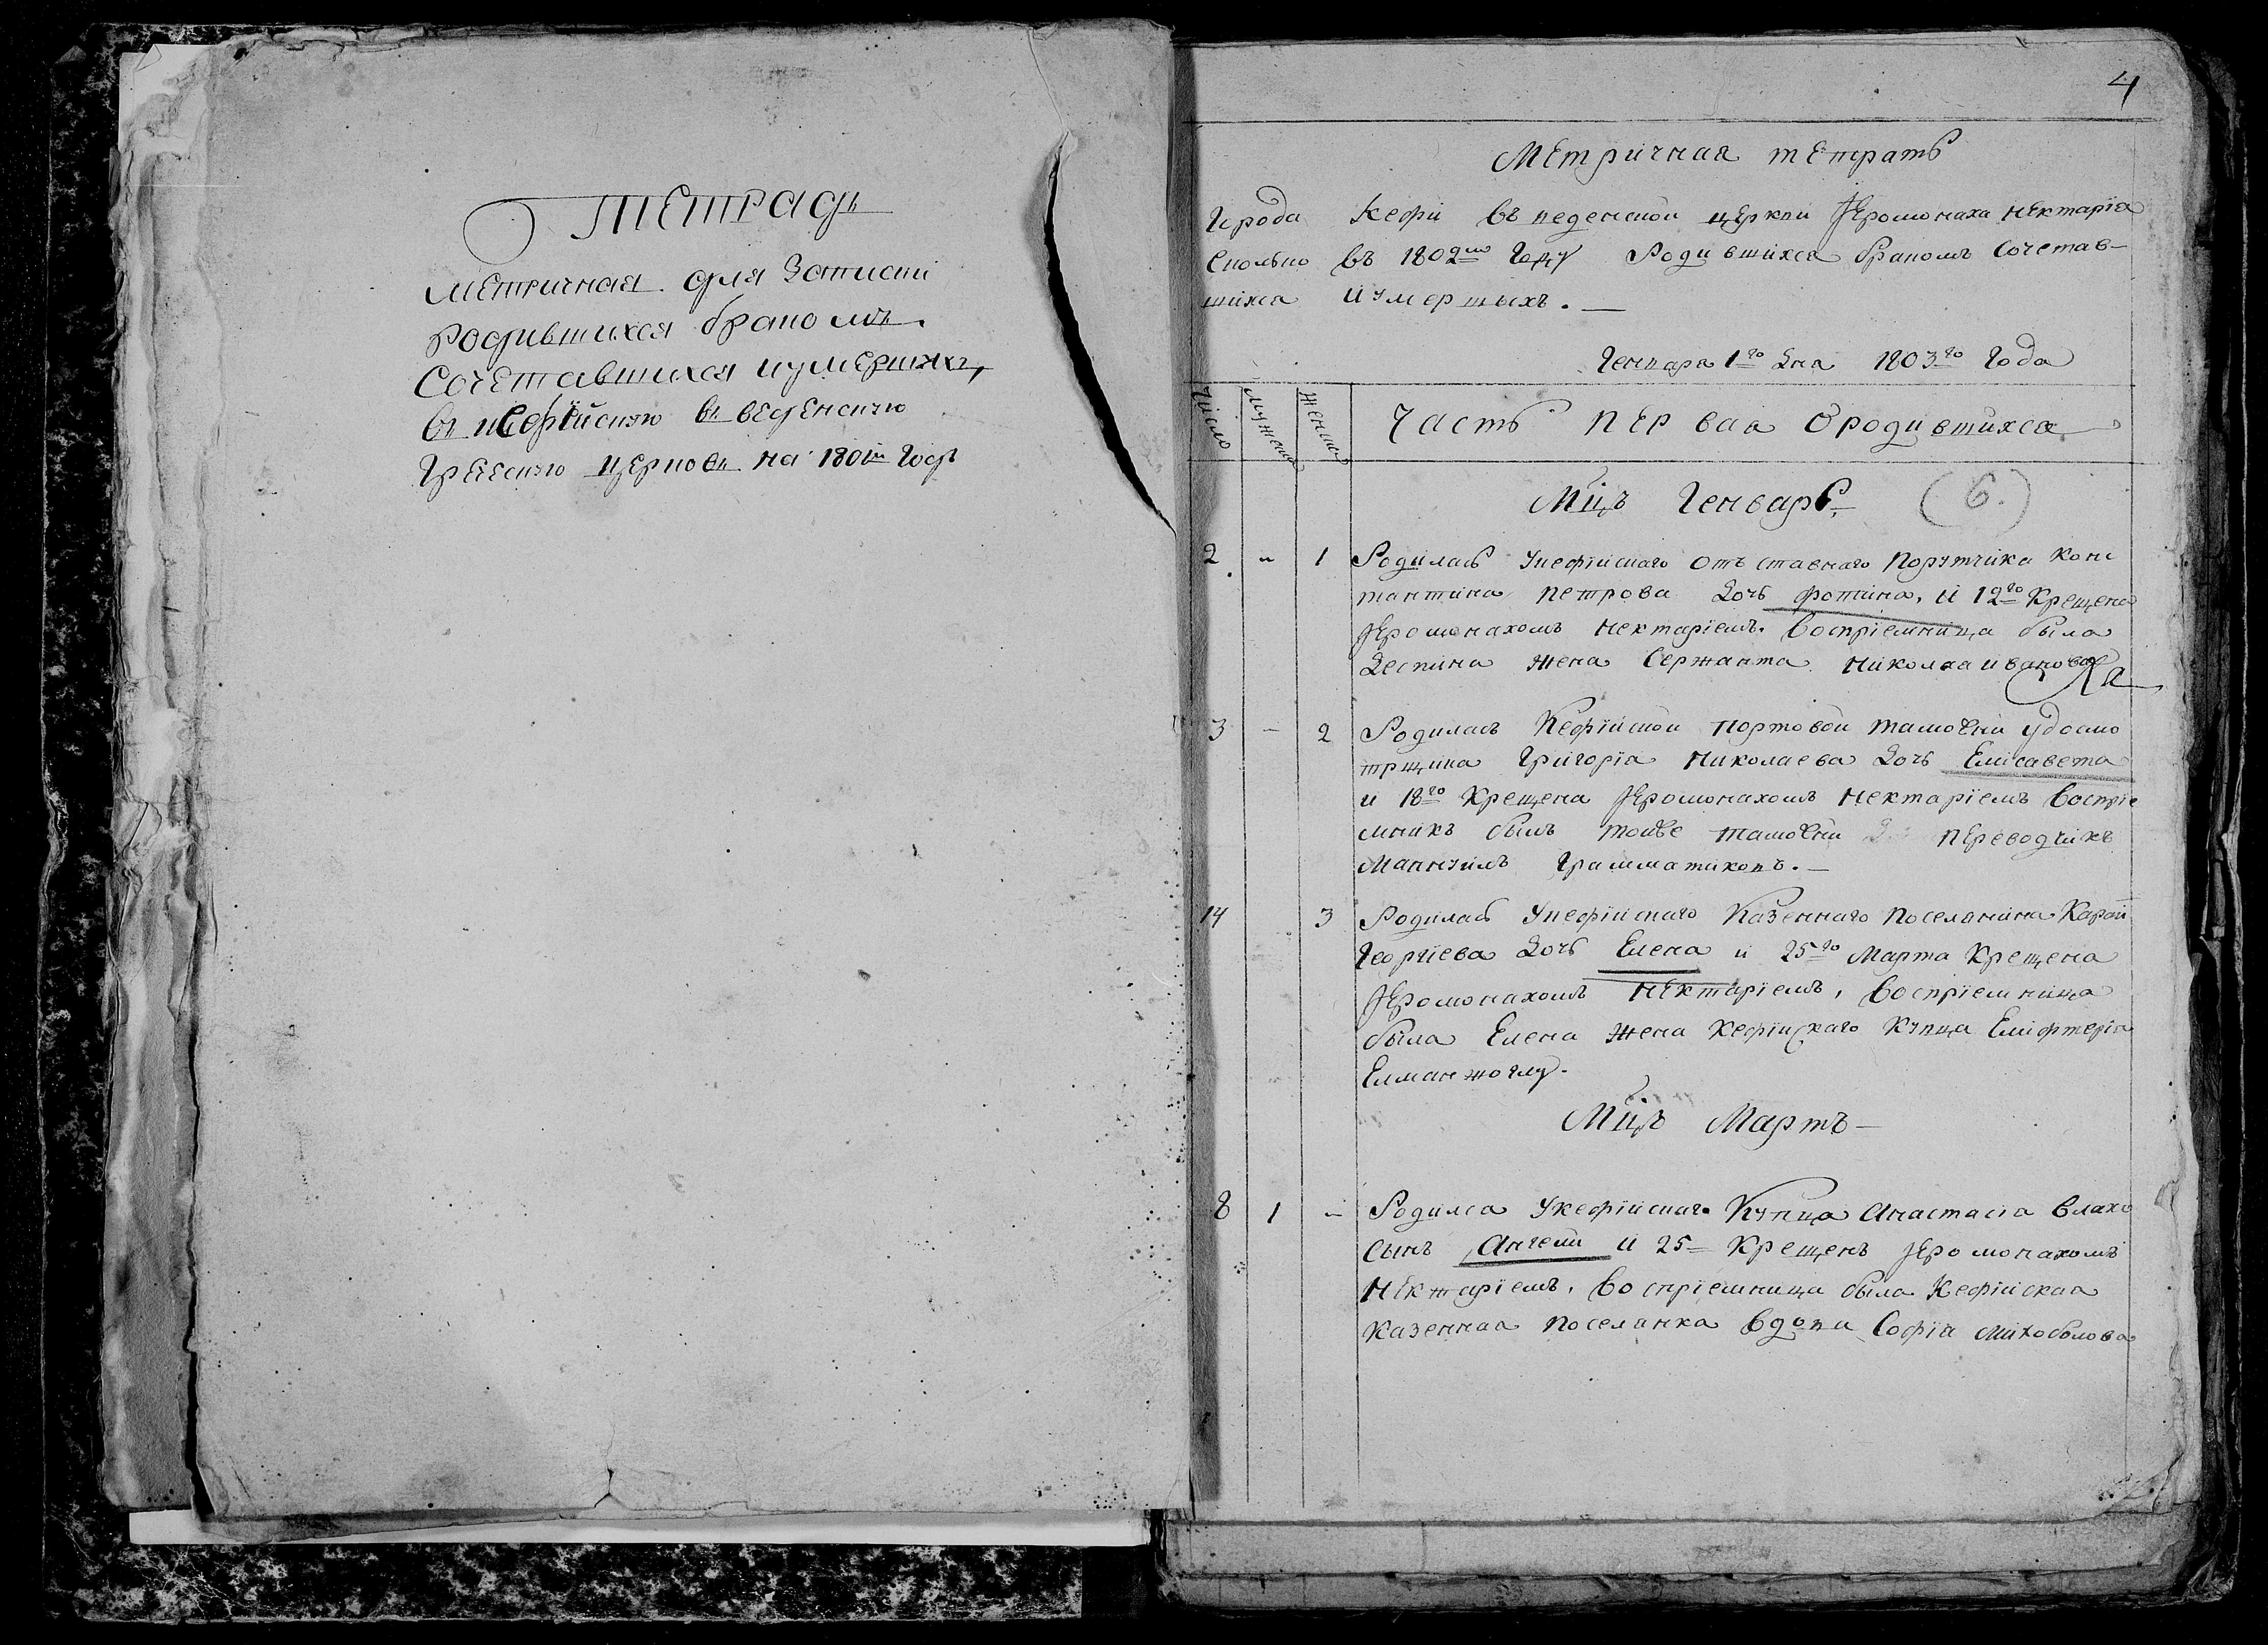 Тетрадь
метричная для Записки
родившихся бракомъ
Сочетавшихся иумершихъ,
въ кефiйскую въведенскую
Греческую церковь на 180 Годъ
4
Метричная тетрать
Города Кефи въ веденской церкви Iеромонаха нектарiа
сколько въ 1802мъ Году Родившихся бракомъ Сочетав-
шихса иумершыхъ. —
Генваря 1го дна 1803го Года
Число
мужеска
женска
Часть первая О родившихса
Мцъ Генварь
(6.)
2 - 1 Родилась Укефiйскаго отъставнаго Порутчика Конс
тантина петрова Дочь фотина, и 12го Крещена
Iеромонахомъ нектарiемъ. воспрiемница была
Деспина жена Сержанта николаа иванова
3 - 2 Родилась Кефiйской портовой таможни удосмо
трщика Григорiа николаева Дочь Елисавета
и 18го Крещена Iеромонахомъ нектарiемъ воспрiе
мникъ былъ тойже таможни переводчикъ
Мануилъ Грамматиковъ. —
14 3 Родилась Укефiйскаго Казеннаго поселанина Карай
Георгiева Дочь Елена и 25го Марта Крещена
Iеромонахомъ нектарiемъ, воспрiемница
была Елена жена Кефiйскаго Купца Елифтерiа
Елманжоглу.
Мцъ Мартъ —
8 1 - Родилса Укефiйскаго Купца Анастасiа влахо
сынъ Ангели и 25 Крещенъ Iеромонахомъ
нектарiемъ, воспрiемница была Кефiйскаа
Казеннаа поселанка вдова Софiа